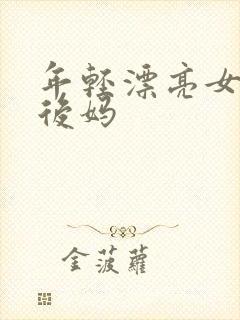 年轻漂亮女
後妈
金菠蘿